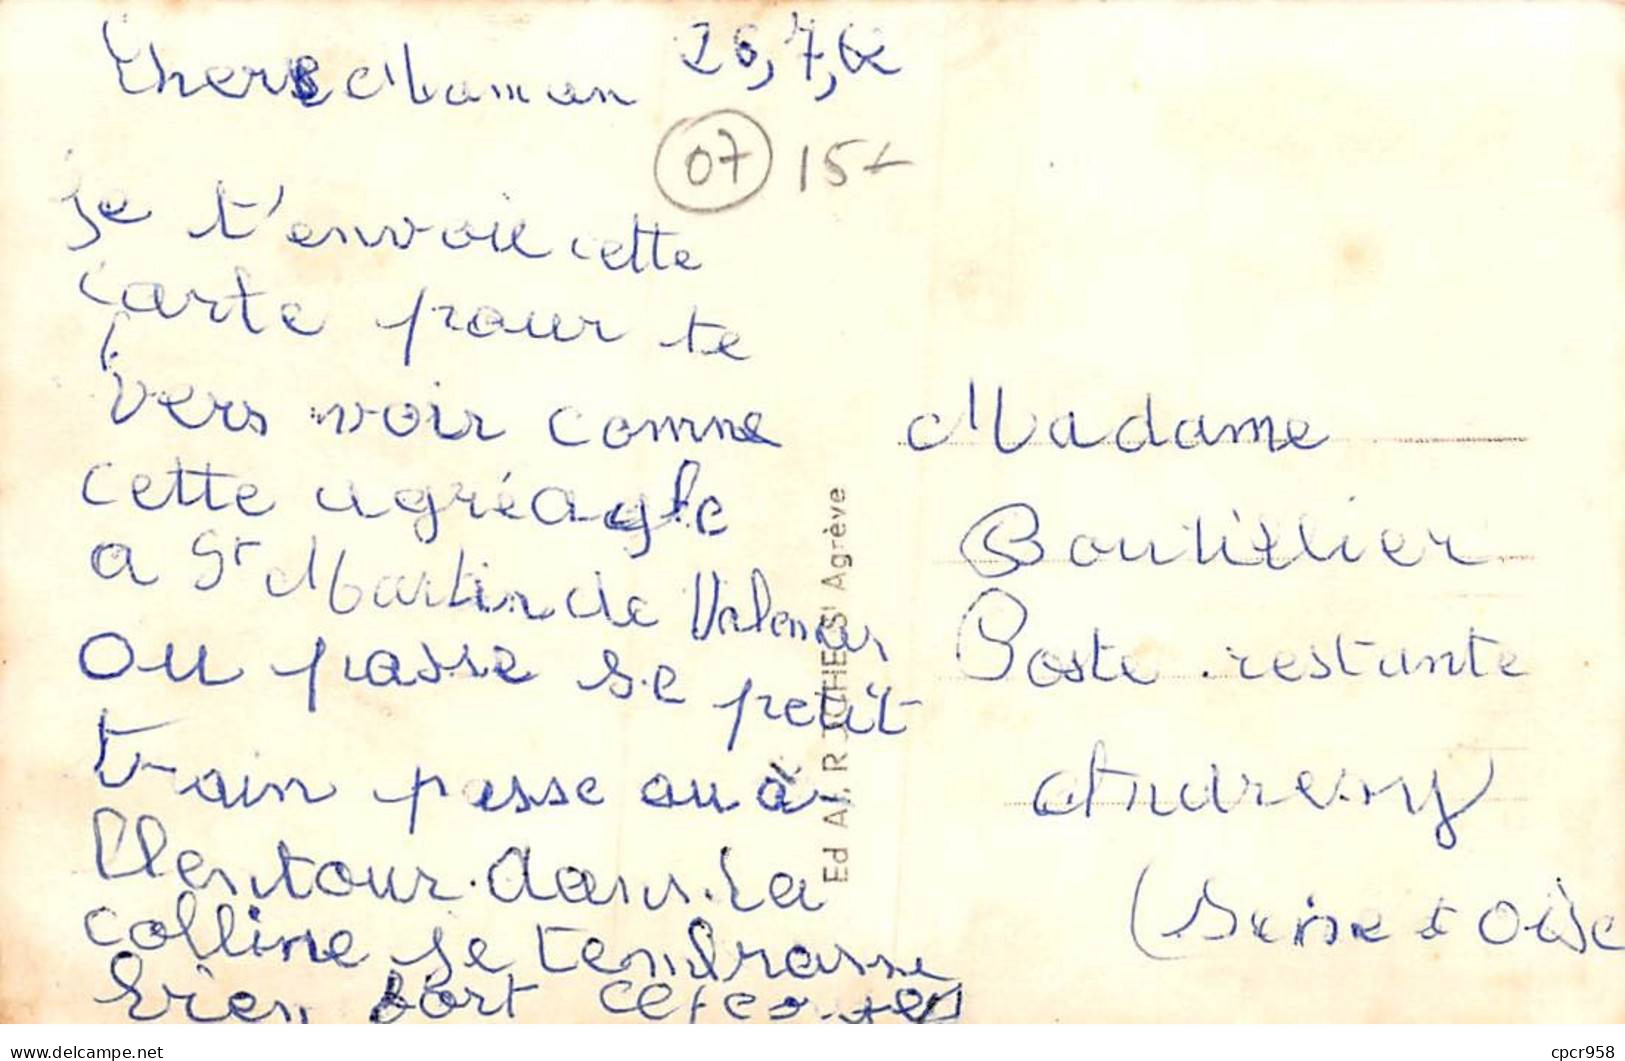 chere Maman 26,7,62
07 15
je t'envoie cette
carte pour te
vers voir comme
cette agréable
a St Martin de Valamas
ou passe se petit
train passe ou à
l'lentour dans la
colline je t'embrasse
bien fort
Madame
Boutillier
Poste restante
Andresy
(Seine et Oise
St Agrève
cpcr958